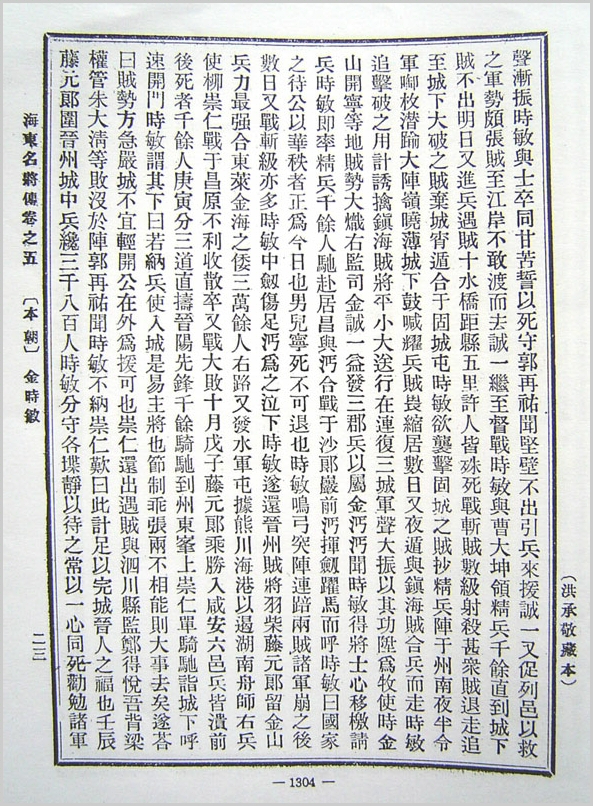 (洪承敬藏本)
聲漸振時敏與士卒同甘苦誓以死守郭再祐聞堅壁不出引兵來援誠一又促列邑以救
之軍勢頗張賊至江岸不敢渡而去誠一繼至督戰時敏與曹大坤領精兵千餘直到城下
賊不出明日又進兵遇賊十水橋距縣五里許人皆殊死戰斬賊數級射殺甚衆賊退走追
至城下大破之賊棄城宵遁合于固城屯時敏欲襲擊固城之賊抄精兵陣于州南夜半令
軍啣枚潛踰大陣嶺曉薄城下鼓喊耀兵賊畏縮居數日又夜遁與鎭海賊合兵而走時敏
追擊破之用計誘擒鎭海賊將平小大送行在連復三城軍聲大振以其功陞爲牧使時金
山開寧等地賊勢大熾右監司金誠一益發三郡兵以屬金沔沔聞時敏得將士心移檄請
兵時敏即率精兵千餘人馳赴居昌與沔合戰于沙郞巖前沔揮劒躍馬而呼時敏曰國家
之待公以華秩者正爲今日也男兒寧死不可退也時敏鳴弓突陣連踣兩賊諸軍崩之後
數日又戰斬級亦多時敏中劒傷足沔爲之泣下時敏遂還晉州賊將羽柴藤元郞留金山
兵力最强合東萊金海之倭三萬餘人右路又發水軍屯據熊川海港以遏湖南舟師右兵
使柳崇仁戰于昌原不利收散卒又戰大敗十月戊子藤元郞乘勝入咸安六邑兵皆潰前
後死者千餘人庚寅分三道直擣晉陽先鋒千餘騎馳到州東峯上崇仁單騎馳詣城下呼
速開門時敏謂其下曰若納兵使入城是易主將也節制乖張兩不相能則大事去矣遂荅
曰賊勢方急嚴城不宜輕開公在外爲援可也崇仁還出遇賊與泗川縣監鄭得悅吾背梁
權管朱大淸等敗沒於陣郭再祐聞時敏不納崇仁歎曰此計足以完城晉人之福也壬辰
藤元郞圍晉州城中兵纔三千八百人時敏分守各堞靜以待之常以一心同死勸勉諸軍
海東名將傳卷之五 〔本朝〕 金時敏 二三
— 1304 —